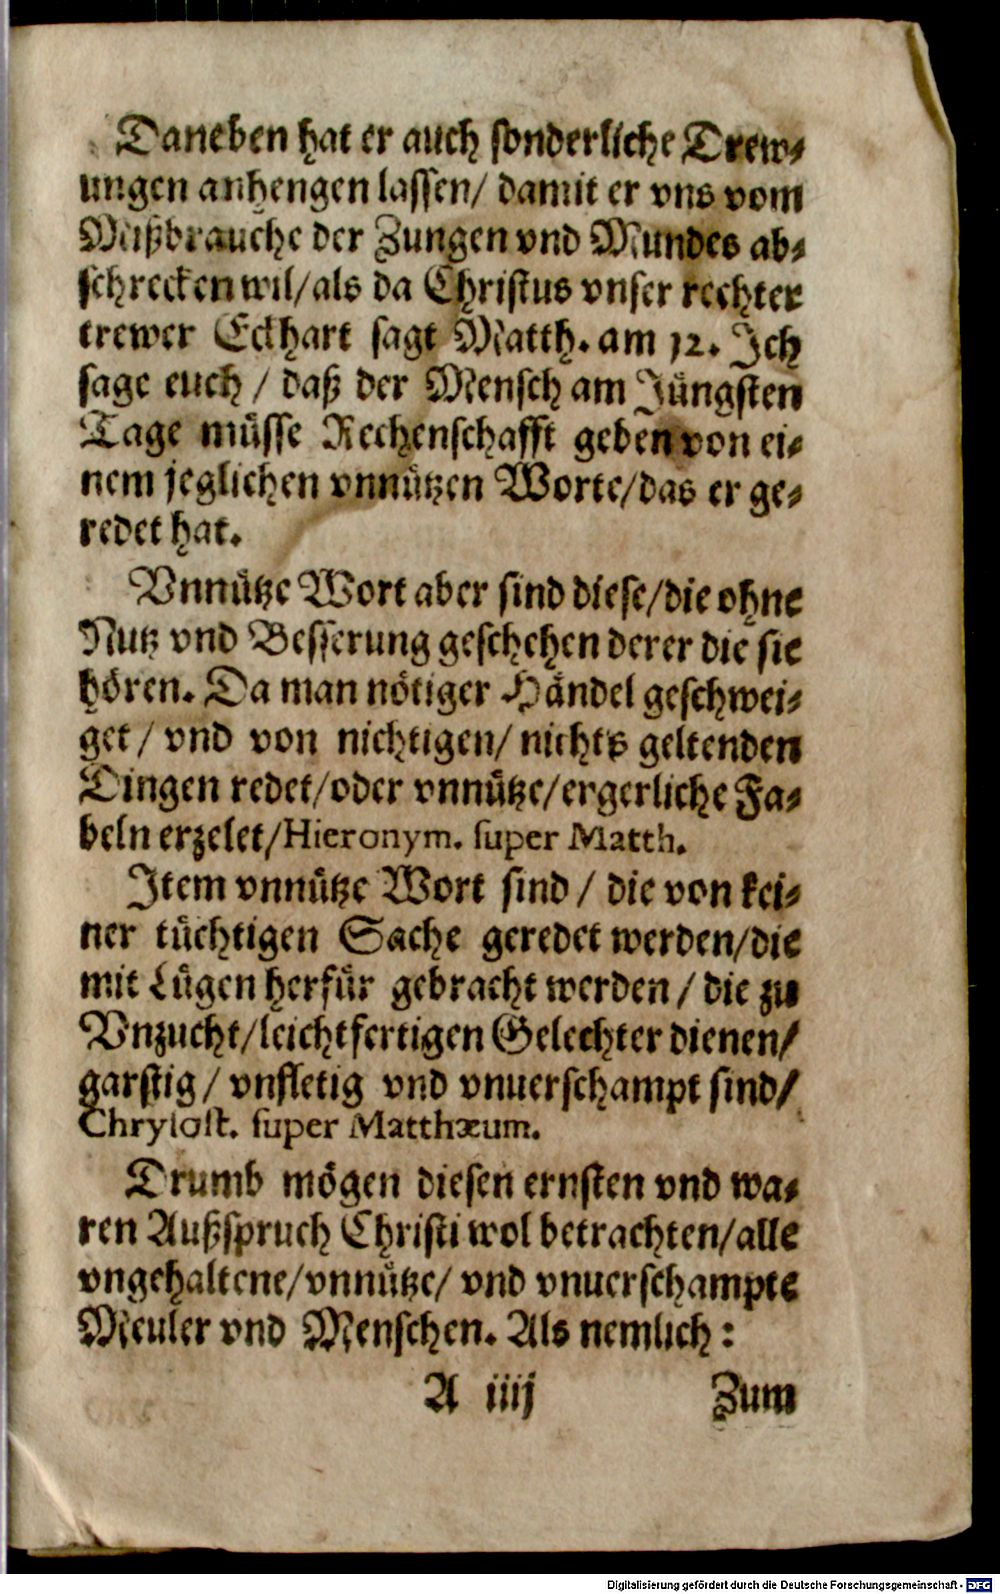 Daneben hat er auch sonderliche Drew⸗
ungen anhengen lassen/ damit er vns vom
Mißbrauche der Zungen vnd Mundes ab⸗
schrecken wil/als da Christus vnser rechter
trewer Eckhart sagt Matth. am 12. Ich
sage euch / daß der Mensch am Jüngsten
Tage müsse Rechenschafft geben von ei⸗
nem jeglichen vnnützen Worte/das er ge⸗
redet hat.
Vnnütze Wort aber sind diese/die ohne
Nutz vnd Besserung geschehen derer die sie
hören. Da man nötiger Händel geschwei⸗
get / vnd von nichtigen/ nichts geltenden
Dingen redet/oder vnnütze/ergerliche Fa⸗
beln erzelet/Hieronym. super Matth.
Item vnnütze Wort sind / die von kei⸗
ner tüchtigen Sache geredet werden/die
mit Lügen herfür gebracht werden / die zu
Vnzucht/leichtfertigen Gelechter dienen/
garstig / vnfletig vnd vnuerschampt sind/
Chrysost. super Matthæum.
Drumb mögen diesen ernsten vnd wa⸗
ren Außspruch Christi wol betrachten/alle
vngehaltene/vnnütze/ vnd vnuerschampte
Meuler vnd Menschen. Als nemlich:
A iiij Zum
Digitalisierung gefördert durch die Deutsche Forschungsgemeinschaft - DFG